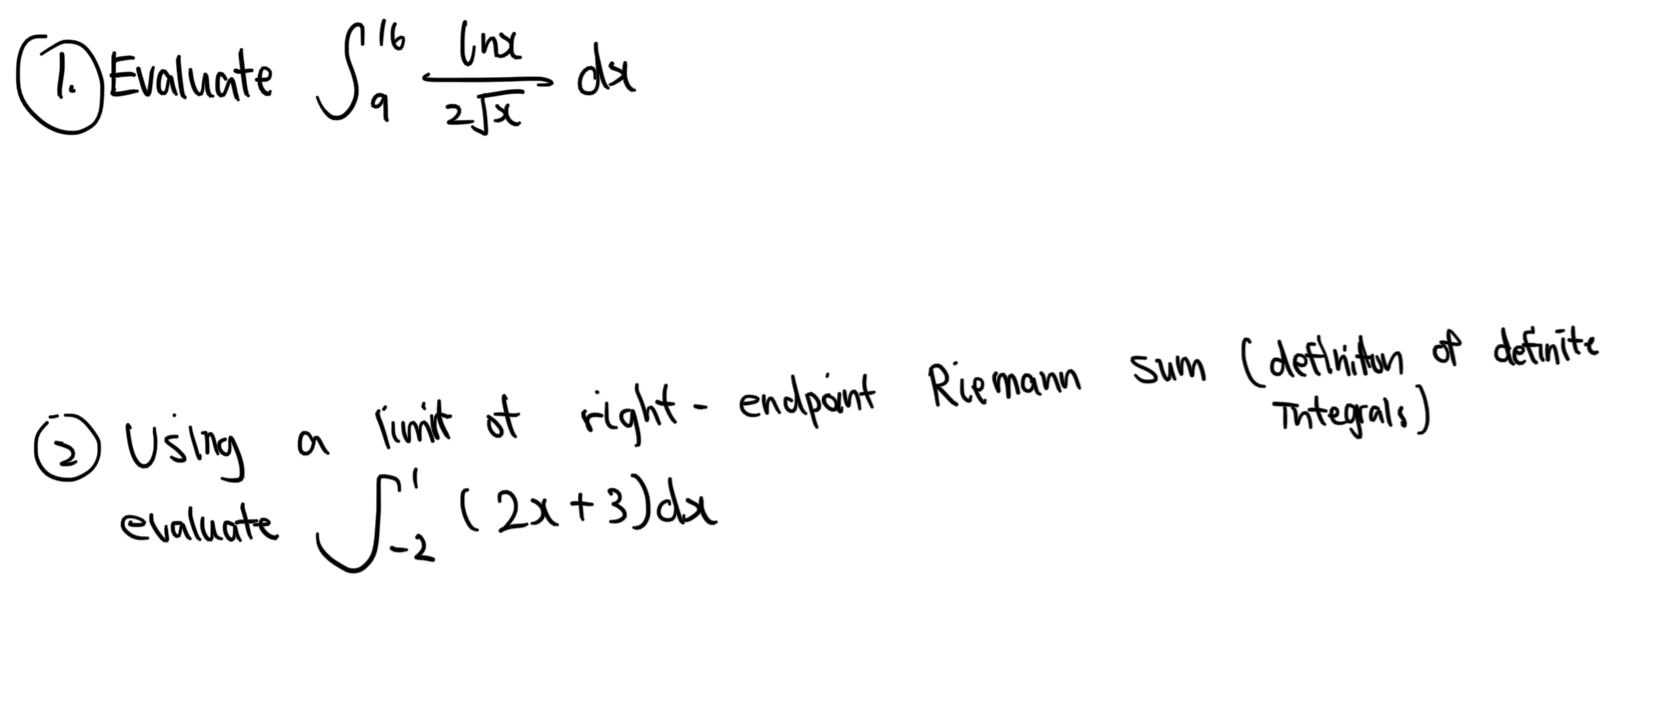 1. Evaluate ∫₉¹⁶ lnx / 2√x dx
② Using a limit of right-endpoint Riemann sum (definition of definite
Integrals)
evaluate ∫₋₂¹ (2x+3)dx